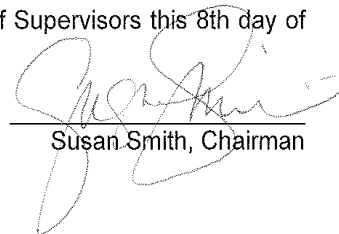 f Supervisors this 8th day of
Susan Smith
Susan Smith, Chairman